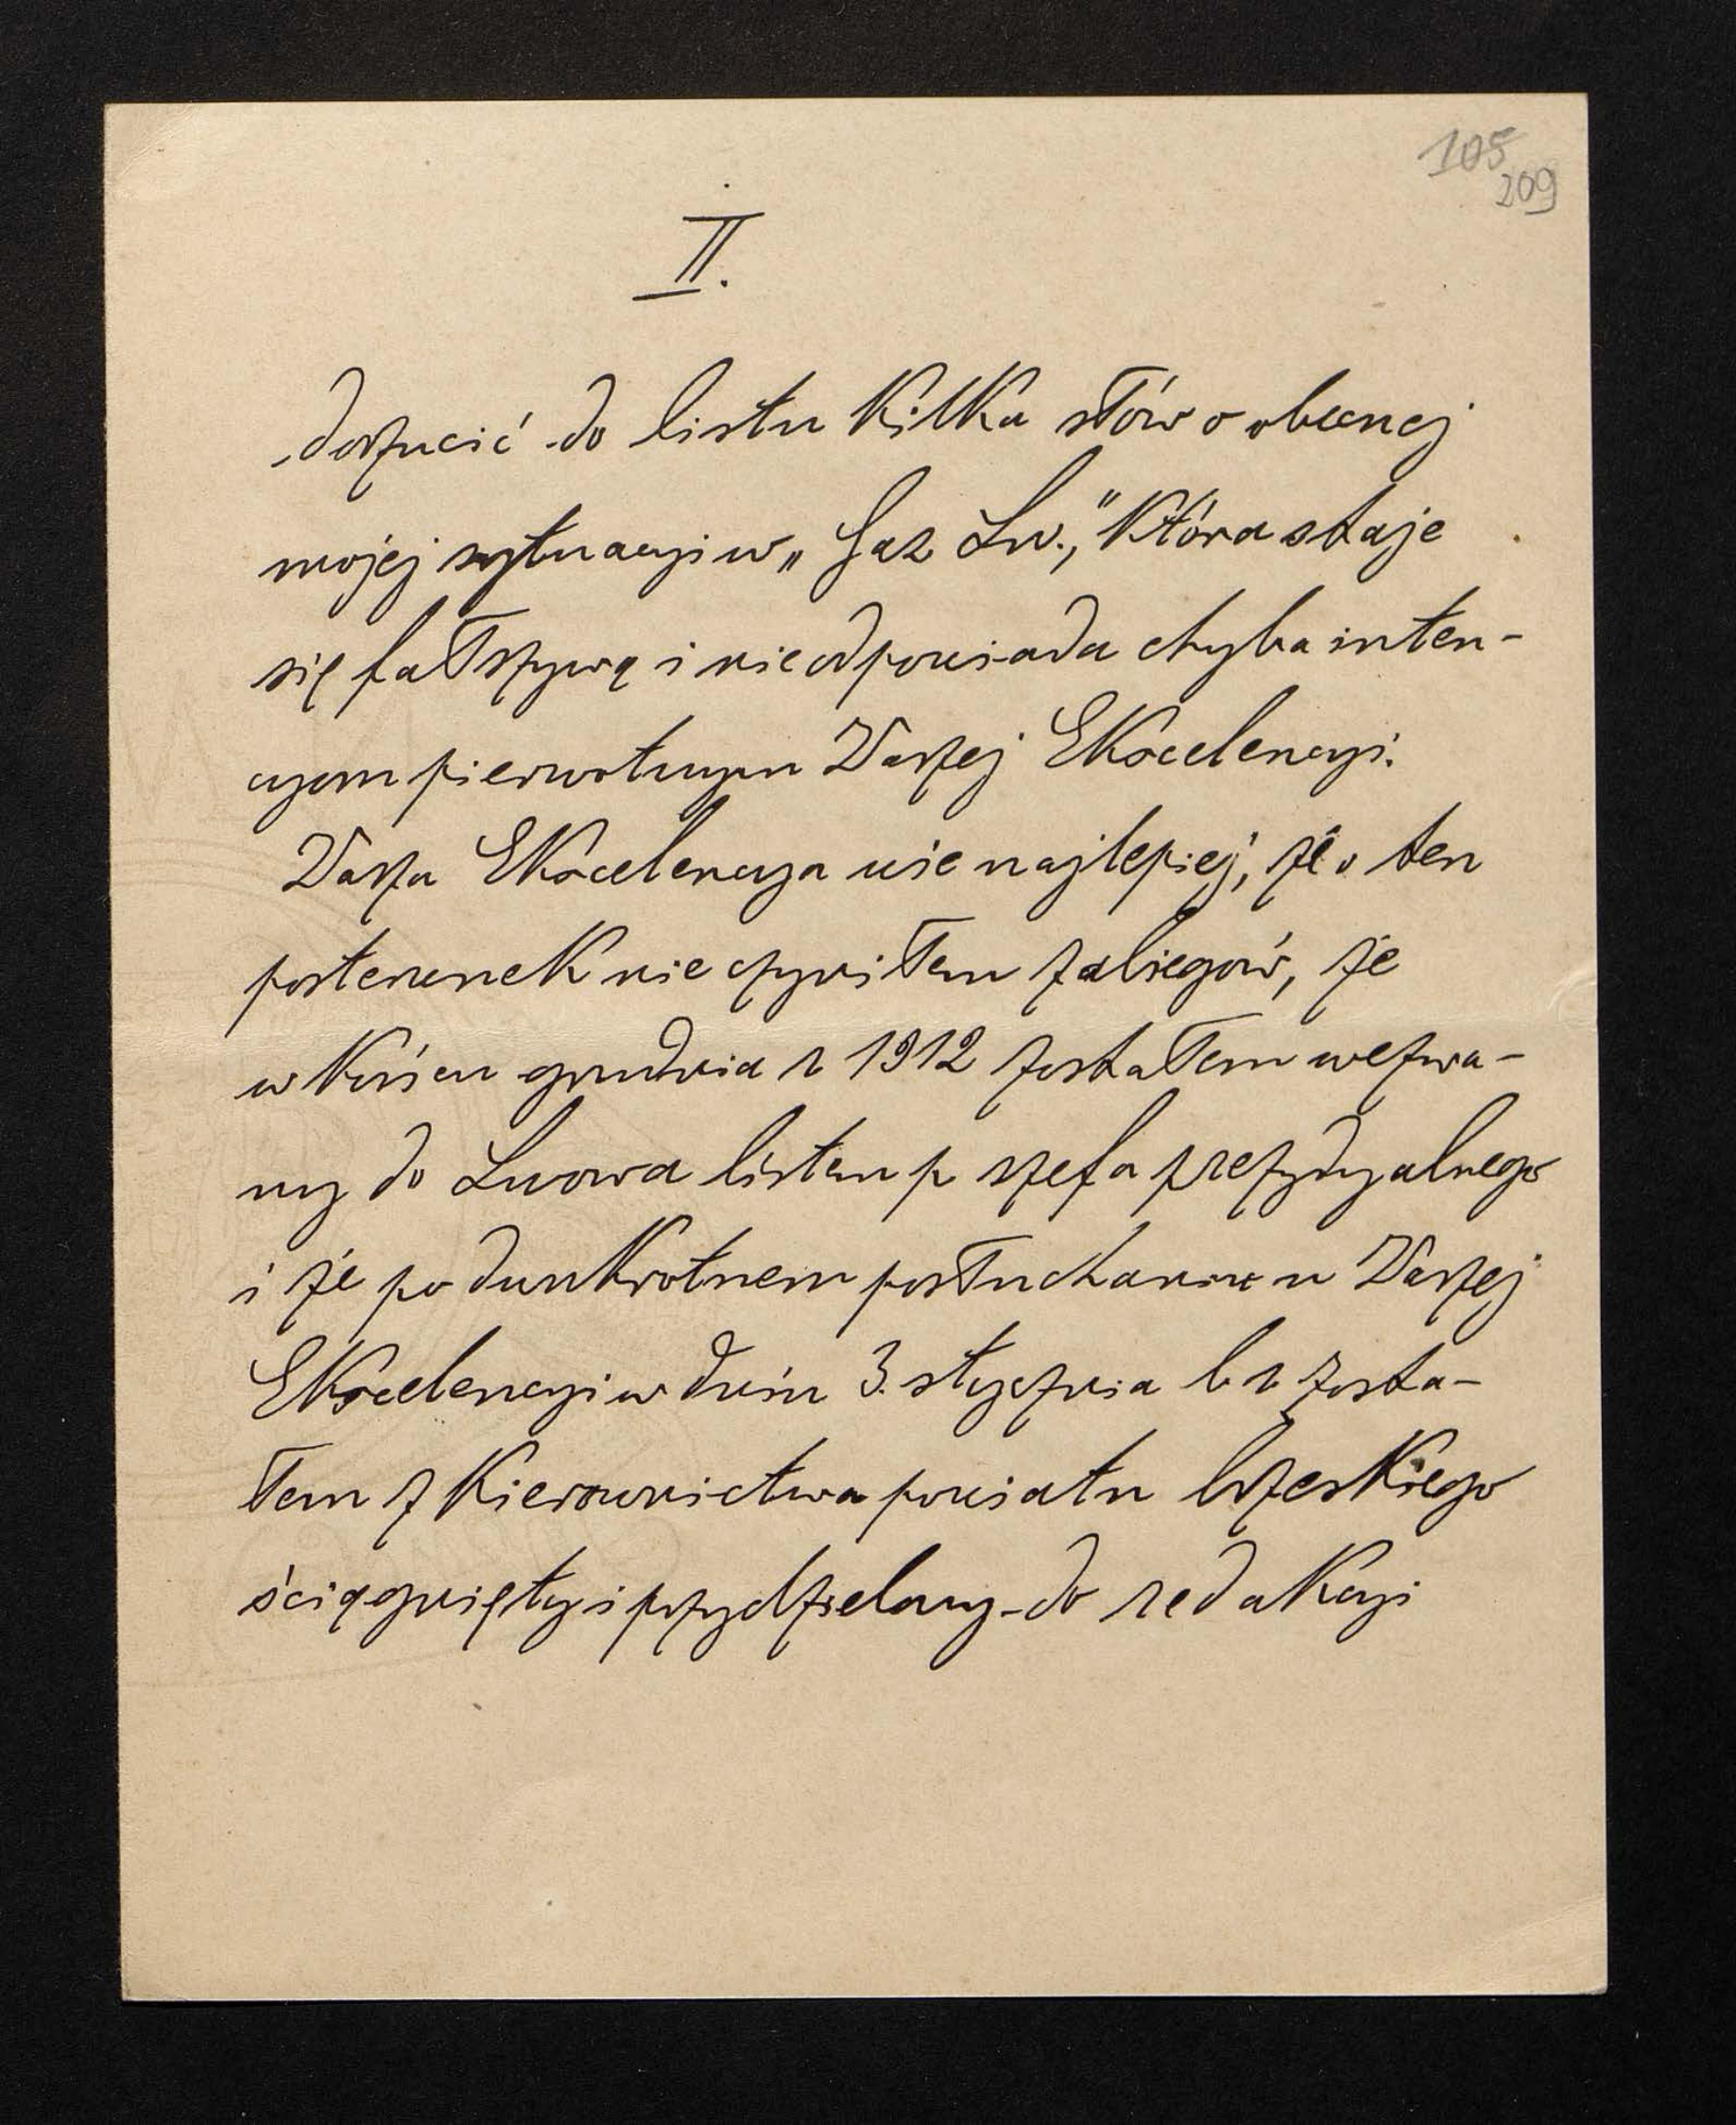 105
209
II.
dorzucić do listu kilka słów o obecnej
mojej sytuacyi w „Gaz Lw.," która staje
się fałszywą i nie odpowiada chyba inten-
cyom pierwotnym Waszej Ekscelencyi.
Wasza Ekscelencya wie najlepiej, że o ten
posterunek nie czyniłem zabiegów, że
w końcu grudnia r 1912 zostałem wezwa-
ny do Lwowa listem p szefa prezydyalnego
i że po dwukrotnem posłuchaniu u Waszej
Ekscelencyi w dniu 3. stycznia b r zosta-
łem z kierownictwa powiatu brzeskiego
ściągnięty i przydzielony do redakcyi